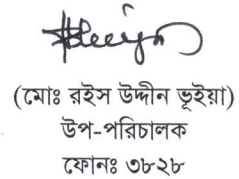 (মোঃ রইস উদ্দীন ভূইয়া)
উপ-পরিচালক
ফোনঃ ৩৮২৮